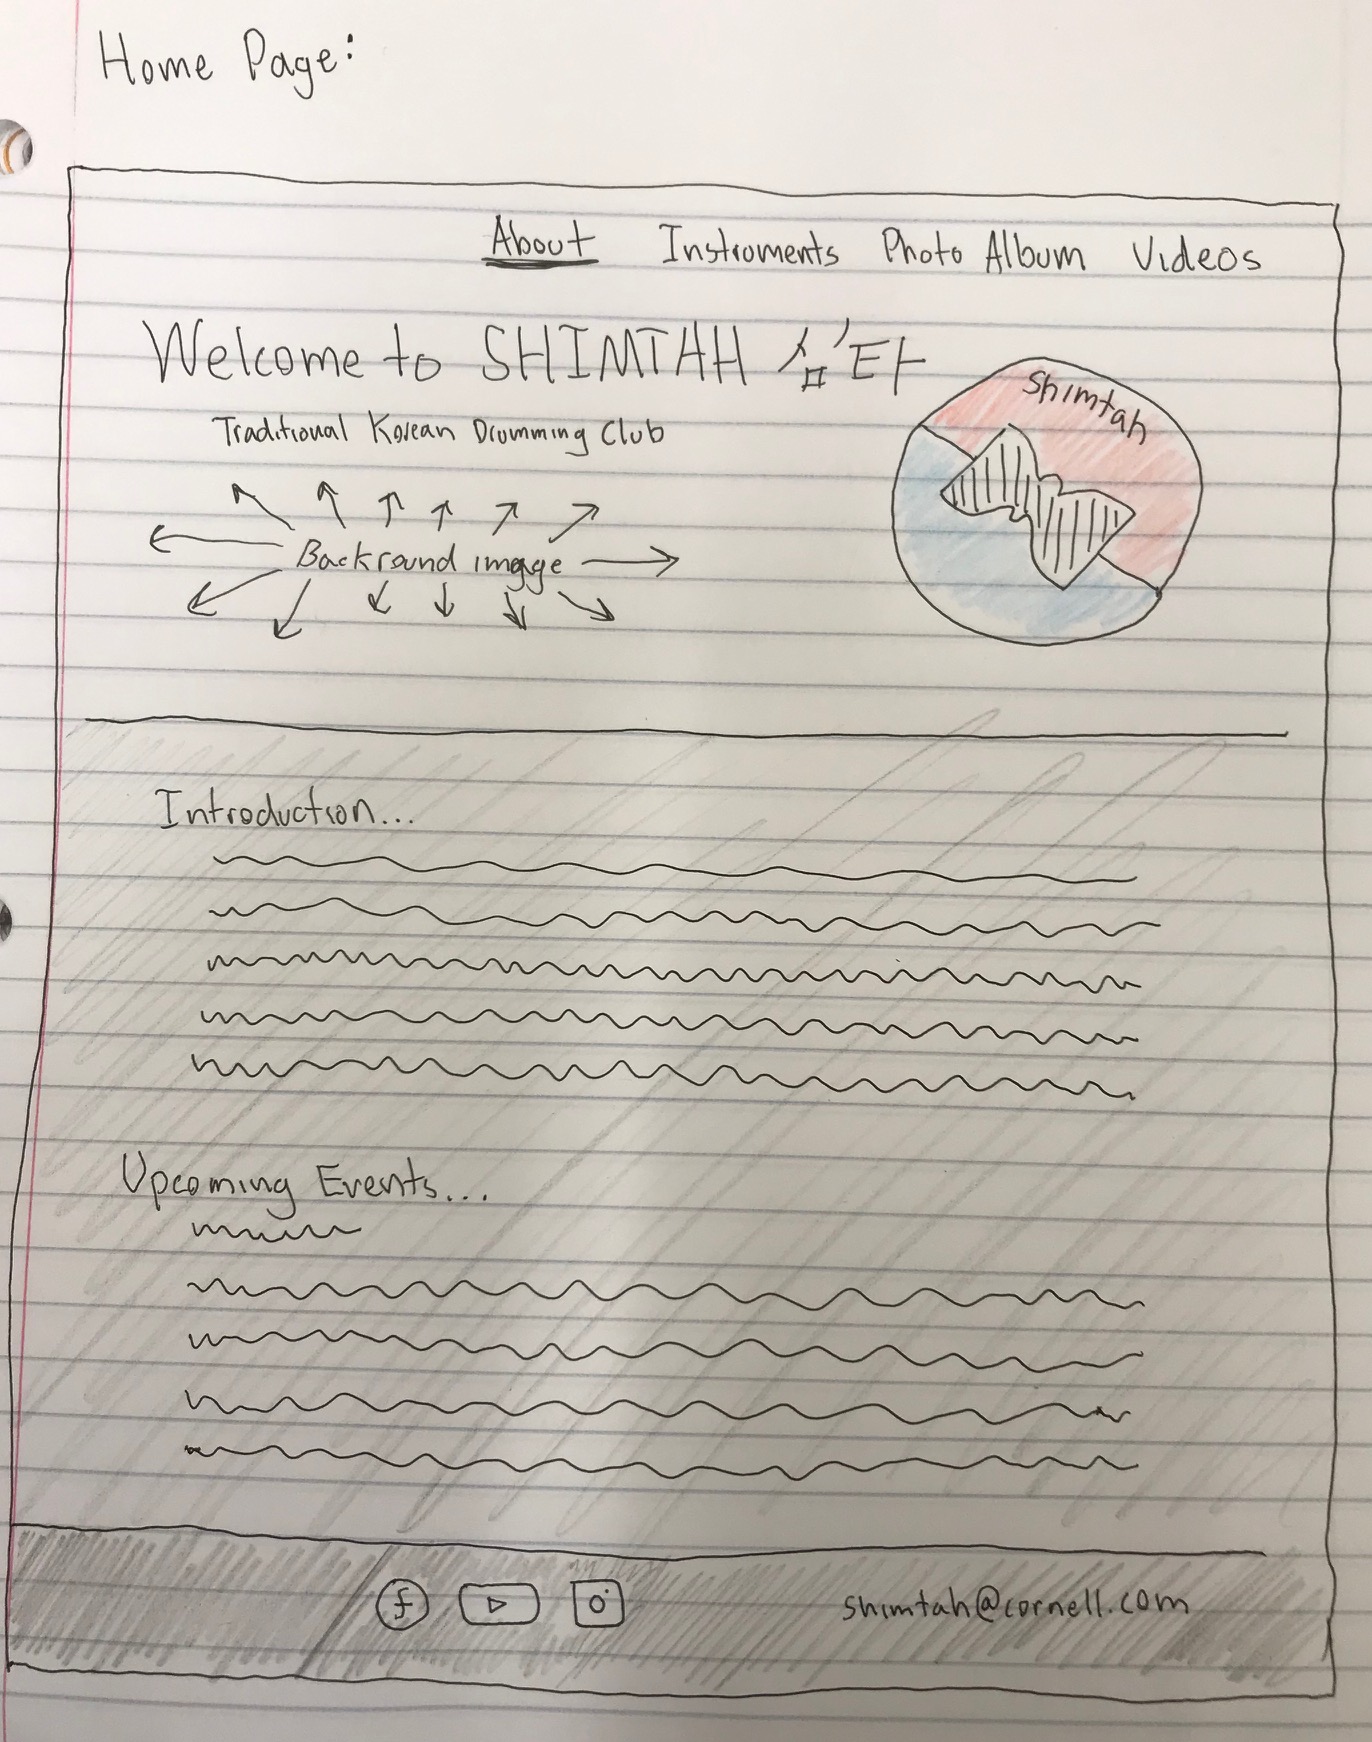 Home Page:
About Instruments Photo Album Videos
Welcome to SHIMTAH 심터
Traditional Korean Drumming Club
Shimtah
Backround image
Introduction...
Upcoming Events...
f
shimtah@cornell.com